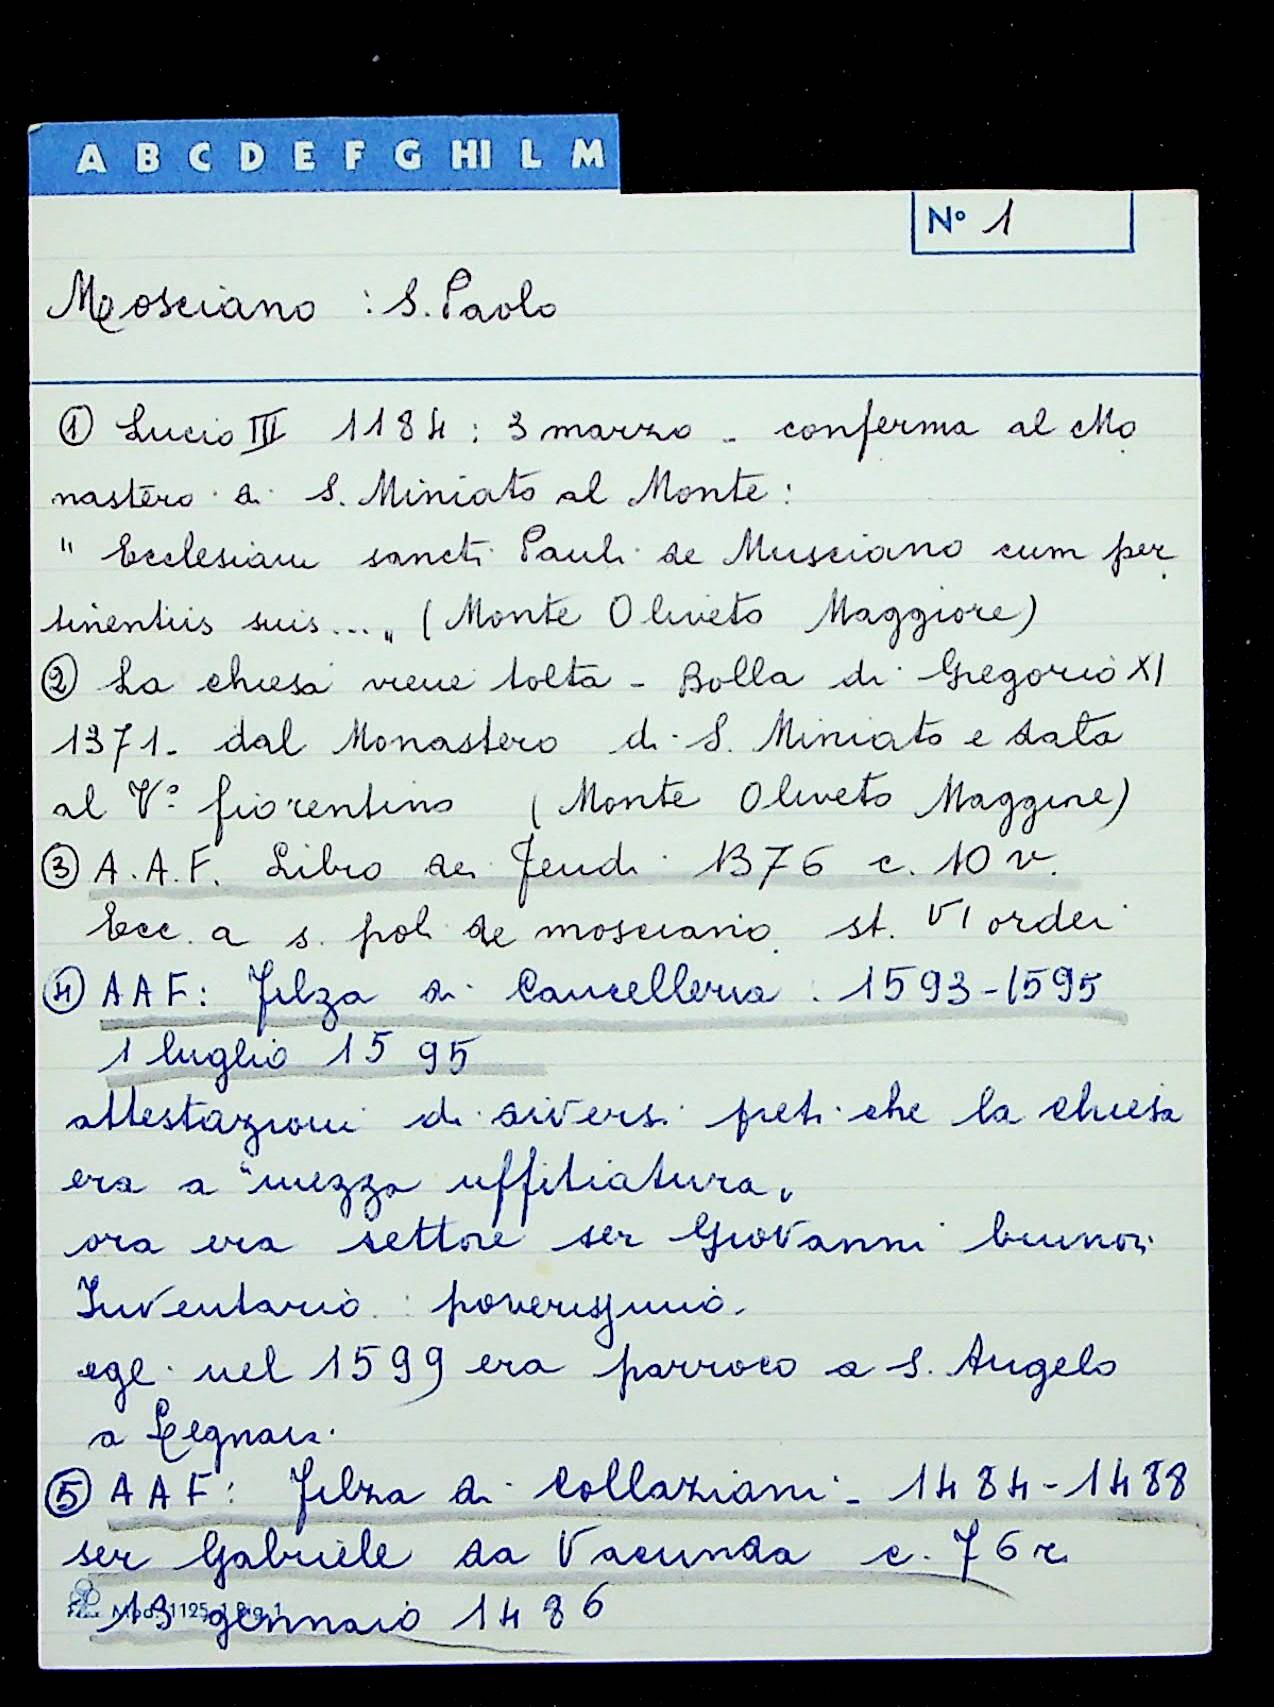 A B C D E F G HI L M
N° 1
Mosciano : S. Paolo
① Lucio III 1184 : 3 marzo - conferma al Mo
nastero di S. Miniato al Monte :
" Ecclesiam sancti Pauli de Musciano cum per
tinentiis suis...„ (Monte Oliveto Maggiore)
② La chiesa viene tolta - Bolla di Gregorio XI
1371 - dal Monastero di S. Miniato e data
al V° fiorentino (Monte Oliveto Maggiore)
③ A.A.F. Libro dei Feudi 1376 c. 10 v.
Ecc. a s. poli de mosciano st. VI ordei
④ AAF: Filza di Cancelleria : 1593-1595
1 luglio 1595
attestazioni di diversi preti che la chiesa
era a "mezza uffitiatura„
ora era rettore ser Giovanni brunori
Inventario : poverissimo.
egli nel 1599 era parroco a S. Angelo
a Legnaia.
⑤ AAF: Filza di Collazioni - 1484-1488
ser Gabriele da Vacunda c. 76 r.
13 gennaio 1486